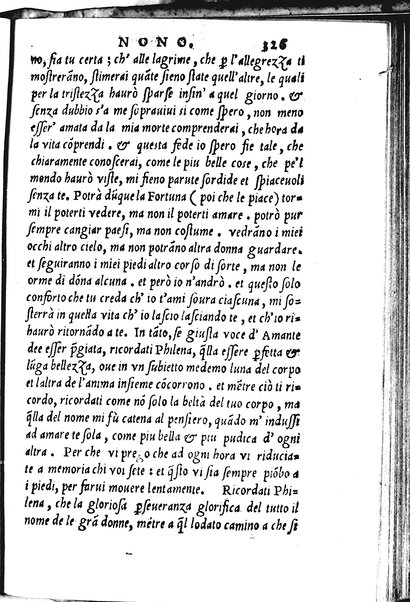 NONO. 326
no, sia tu certa ; ch' alle lagrime, che ꝑ l'allegrezza ti
mostrerāno, stimerai quāte sieno state quell'altre, le quali
per la tristezza haurò sparse insin' a quel giorno. &
senza dubbio s'a me soprauiui si come spero, non meno
esser' amata da la mia morte comprenderai, che hora da
la vita cōprendi. & questa fede io spero fie tale, che
chiaramente conoscerai, come le piu belle cose, che pe'l
mondo haurò viste, mi fieno parute sordide et spiaceuoli
senza te. Potrà dūque la Fortuna ( poi che le piace) tor-
mi il poterti vedere, ma non il poterti amare. potrò pur
sempre cangiar paesi, ma non costume. vedrāno i miei
occhi altro cielo, ma non potrāno altra donna guardare.
et seguiranno i miei piedi altro corso di sorte, ma non le
orme di dōna alcuna. et però io n'andrò. et questo solo
conforto che tu creda ch' io t'ami soura ciascuna, mi so-
sterrà in questa vita ch' io lascio lasciando te, et ch'io ri-
haurò ritornādo a te. In tāto, se giusta voce d' Amante
dee esser p̄giata, ricordati Philena, q̄lla essere ꝑfetta &
lūga bellezza, oue in vn subietto medemo luna del corpo
et laltra de l'anima insieme cōcorrono. et mētre ciò ti ri-
cordo, ricordati come nō solo la beltà del tuo corpo, ma
q̄lla del nome mi fù catena al pensiero, quādo m' indussi
ad amare te sola, come piu bella & piu pudica d' ogni
altra. Per che vi prego che ad ogni hora vi riducia-
te a memoria chi voi sete : et q̄sto vi sia sempre piōbo a
i piedi, per farui mouere lentamente. Ricordati Phi-
lena, che la gloriosa ꝑseueranza glorifica del tutto il
nome de le grā donne, mētre a q̄l lodato camino a che si